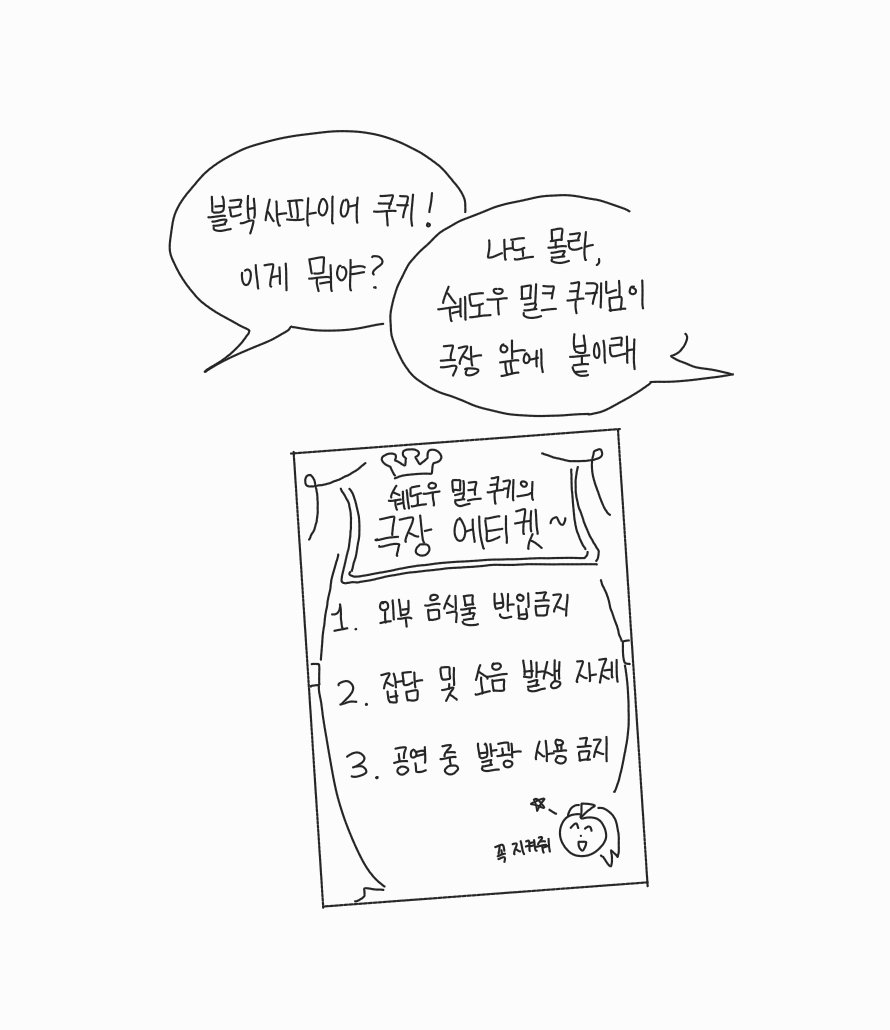 블랙사파이어 쿠키!
이게 뭐야?
나도 몰라,
쉐도우 밀크 쿠키님이
극장 앞에 붙이래
쉐도우 밀크 쿠키의
극장 에티켓~
1. 외부 음식물 반입금지
2. 잡담 및 소음 발생 자제
3. 공연 중 발광 사용 금지
꼭 지켜줘